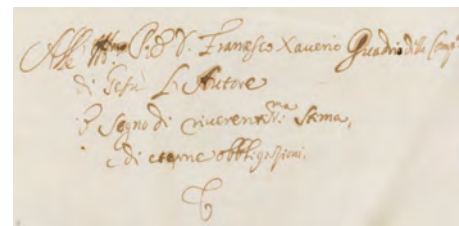 Alle M.to Rdo P. D. V. Francesco Xaverio Quadrio della Comp.a
di Gesù L'Autore
P Segno di riverentis.ma Stima,
di eterne obbligazioni.